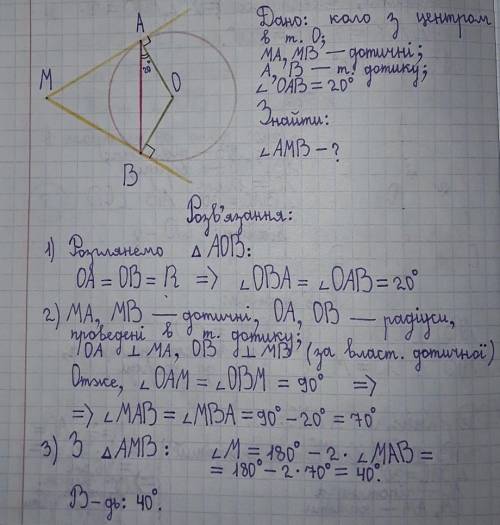 A
M
20°
O
B
Дано: коло з центром
в т. О;
МА, МВ — дотичні;
А, В — т. дотику;
∠OAB = 20°
Знайти:
∠AMB - ?
Розв'язання:
1) Розглянемо △AOB:
OA = OB = R => ∠OBA = ∠OAB = 20°
2) МА, МВ — дотичні, ОА, ОВ — радіуси,
проведені в т. дотику;
OA ⊥ MA, OB ⊥ MB (за власт. дотичної)
Отже, ∠OAM = ∠OBM = 90° =>
=> ∠MAB = ∠MBA = 90° - 20° = 70°
3) З △AMB: ∠M = 180° - 2 · ∠MAB =
= 180° - 2 · 70° = 40°.
В-дь: 40°.